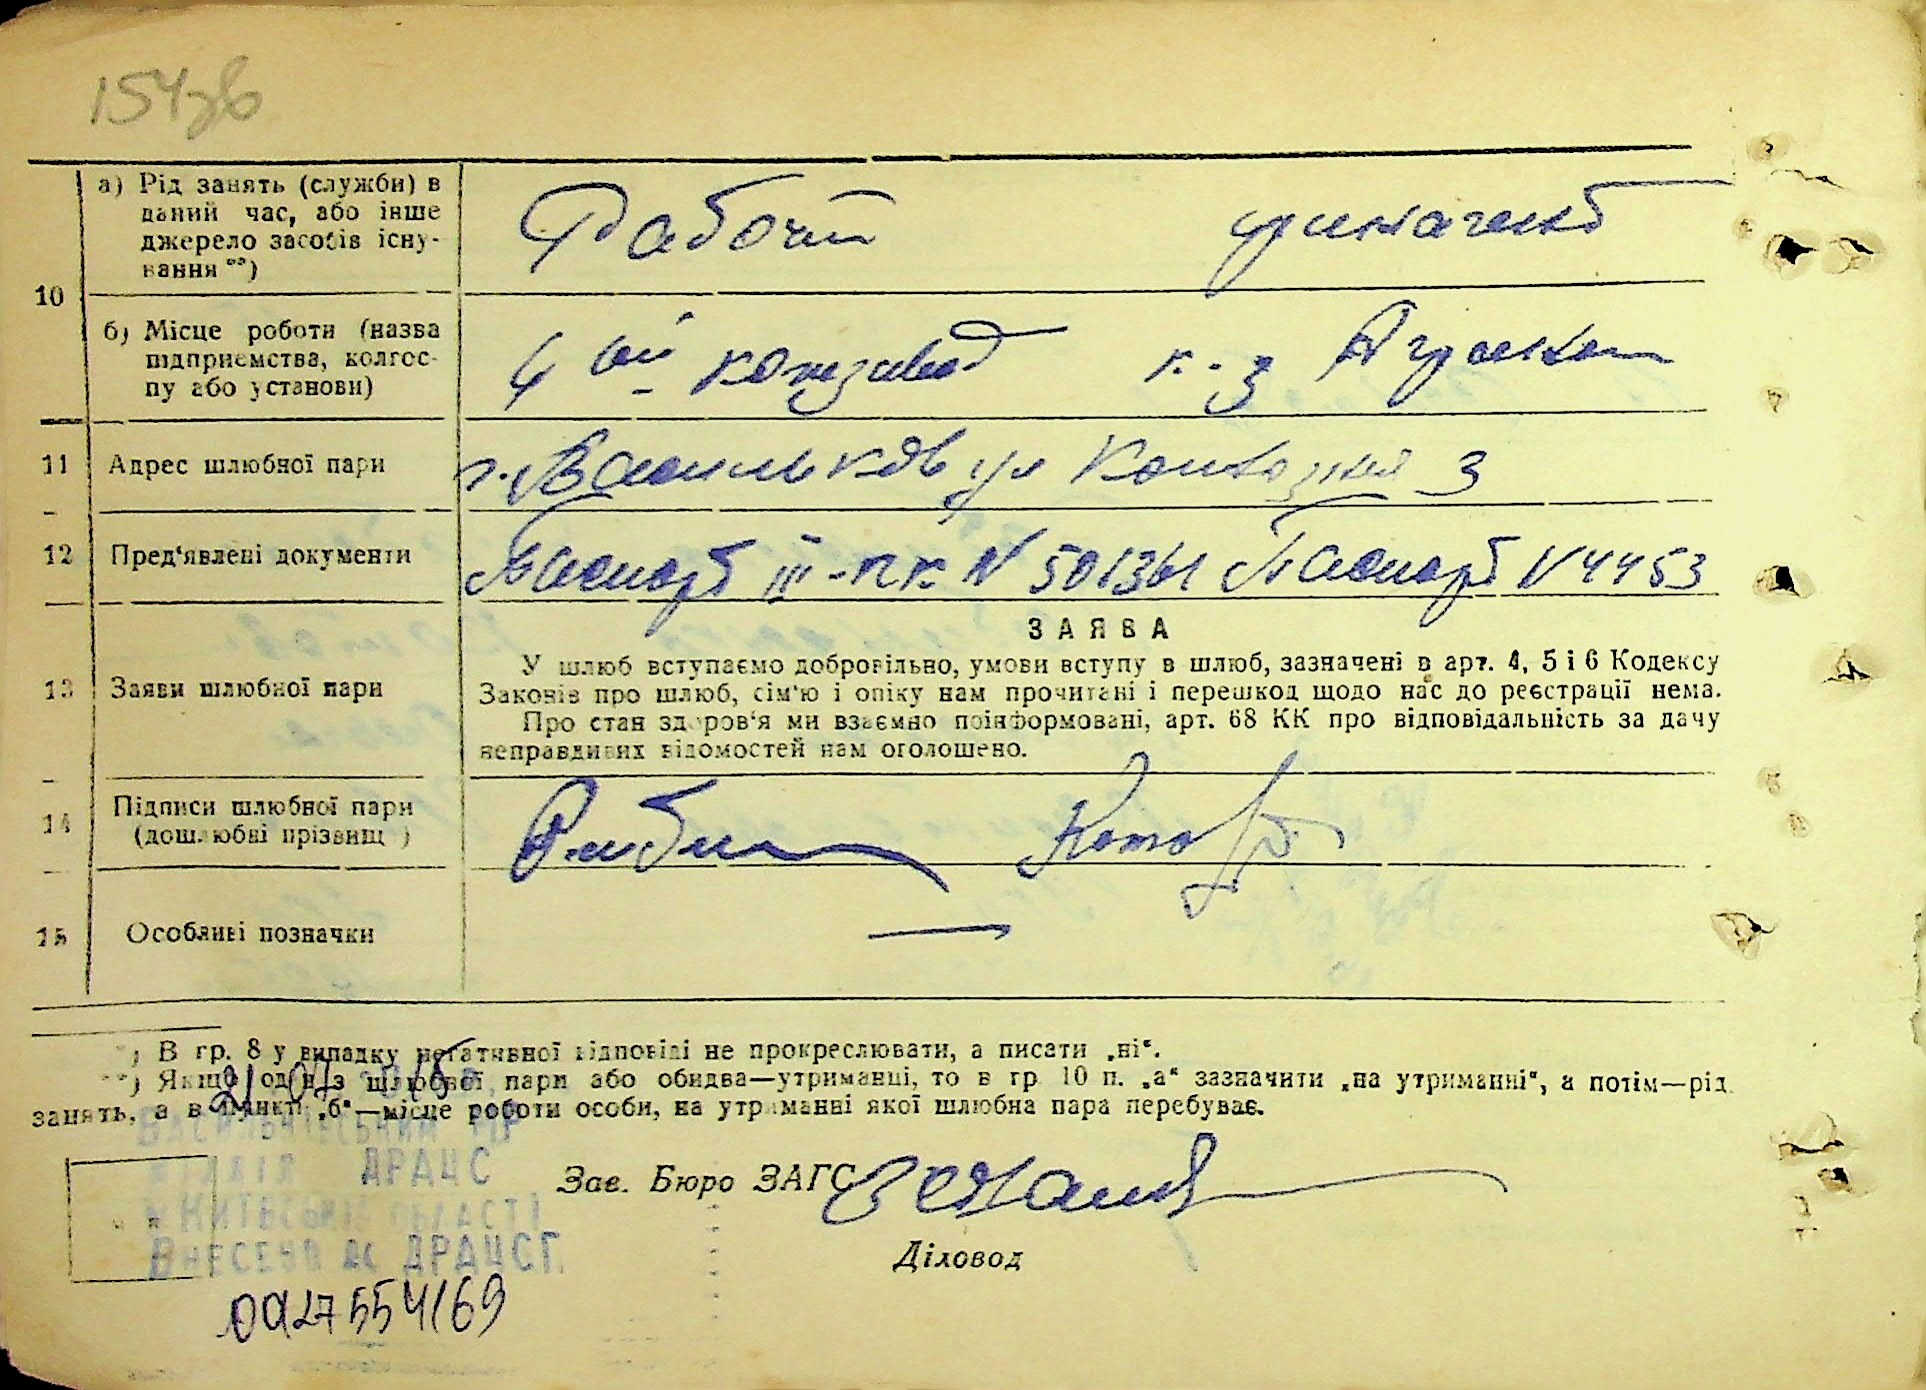 154зв
а) Рід занять (служби) в
даний час, або інше
джерело засобів існу-
вання **)
Рабочий
финагент
10
б) Місце роботи (назва
підприємства, колгос-
пу або установи)
4 ый кожзавод
к-з
11 Адрес шлюбної пари
г. Васильков ул 3
12 Пред'явлені документи
Паспорт III-ПК N 501361 Паспорт N 4453
ЗАЯВА
13 Заяви шлюбної пари
У шлюб вступаємо добровільно, умови вступу в шлюб, зазначені в арт. 4, 5 і 6 Кодексу
Законів про шлюб, сім'ю і опіку нам прочитані і перешкод щодо нас до реєстрації нема.
Про стан здоров'я ми взаємно поінформовані, арт. 68 КК про відповідальність за дачу
неправдивих відомостей нам оголошено.
14 Підписи шлюбної пари
(дошлюбні прізвищ )
15 Особливі позначки —
*) В гр. 8 у випадку негативної відповіді не прокреслювати, а писати „ні“.
**) Якщо один з шлюбної пари або обидва—утриманці, то в гр 10 п. „а“ зазначити „на утриманні“, а потім—рід
занять, а в пункті „б“—місце роботи особи, на утриманні якої шлюбна пара перебуває.
21 07
Васильківський МР
відділ ДРАЦС
Київській області
Внесено до ДРАЦСГ
0027554169
Зав. Бюро ЗАГС
Діловод